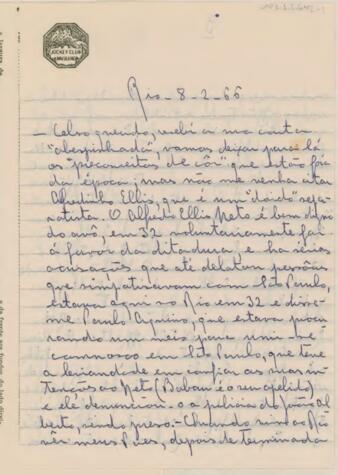 JOCKEY CLUB
BRASILEIRO
Rio - 8-2-66
- Celso querido, recebi a sua carta
"abespinhada", vamos deixar para lá
os "preconceitos de côr" que estão fora
da época; mas não me venha citar
Alfredinho Ellis, que é um "doido" sepa-
ratista. O Alfredo Ellis Neto é bem digno
do avô, em 32 voluntariamente foi
á favor da ditadura e ha sérias
acusações que até delatou pessôas
que simpatisavam com São Paulo,
estava aqui no Rio em 32 e disse-
me Paulo, que estava procu-
rando um meio para unir-se
comnosco em São Paulo, que teve
a leviandade em confiar as suas in-
tenções ao Neto (Babam é o seu apelido)
e ele denunciou-o a policia do João Al-
berto, sendo preso. - Quando vim ao Rio
vêr meus Paes, depois de terminada